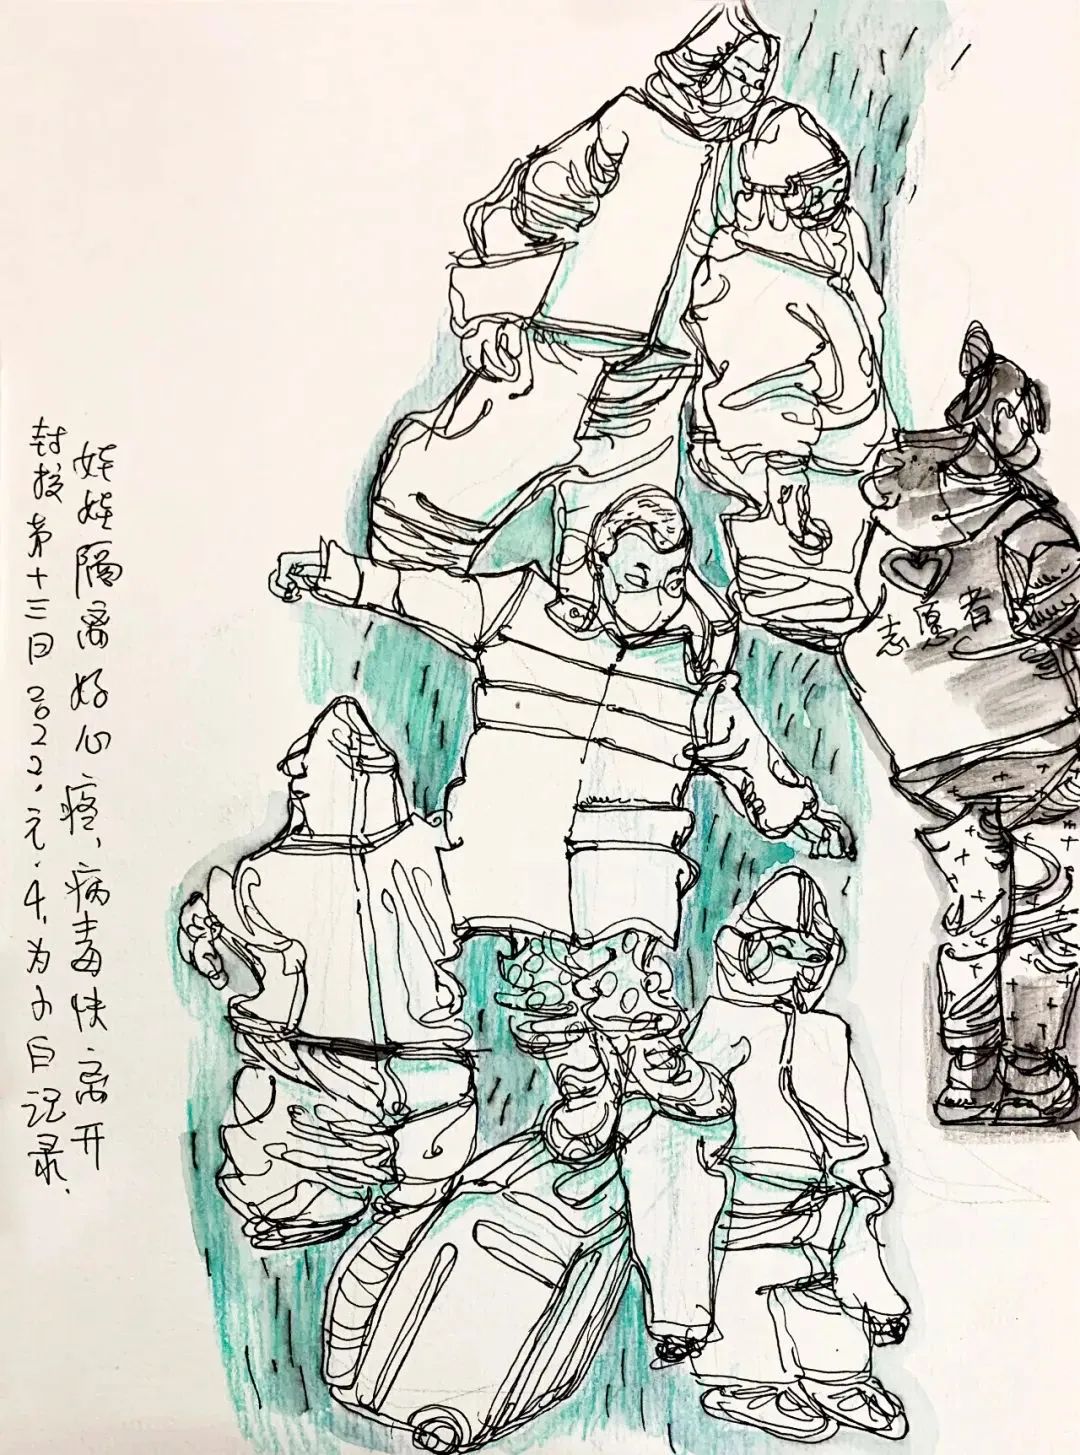 娃娃隔离好心疼、病毒快离开
封控第十三日2022.元.4.为小白记录.
志愿者